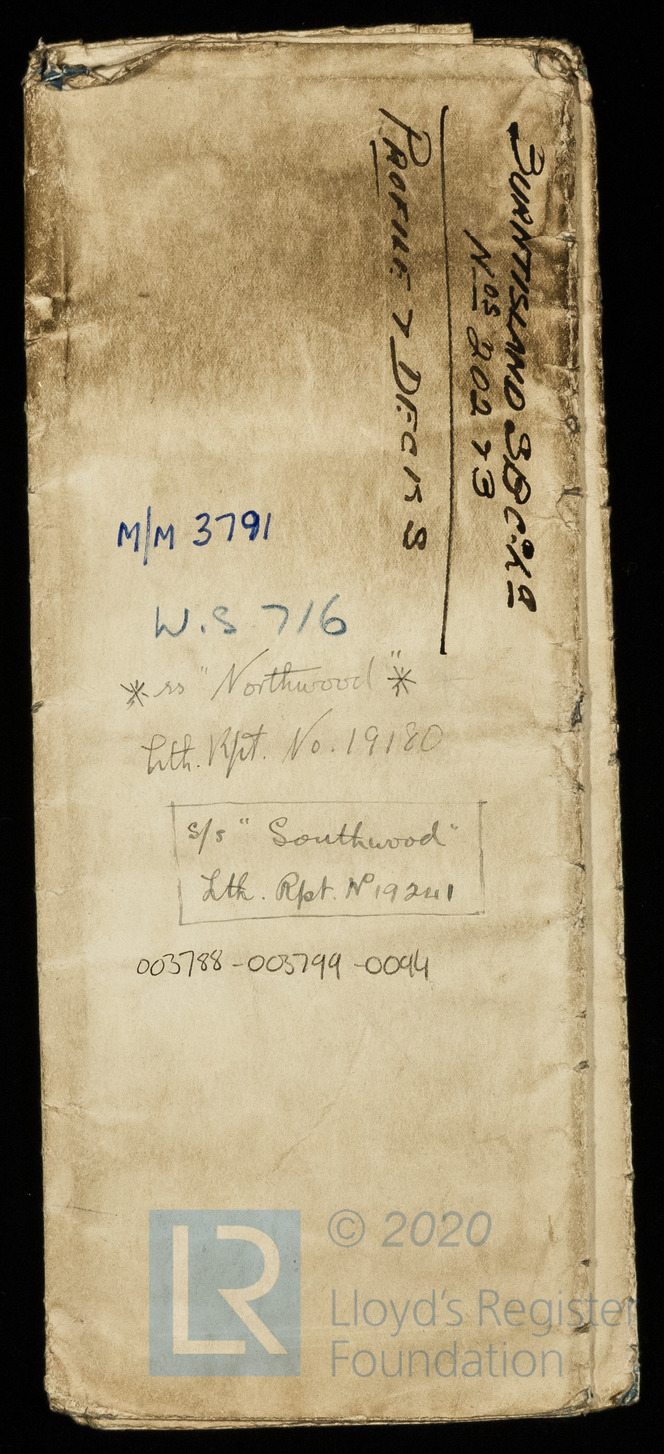 BURNTISLAND SB Co. Ld
Nos 202 & 3
PROFILE & DECKS
M/M 3791
W.S 716
* ss "Northwood" *
Lth. Rpt. No. 19180
s/s "Southwood"
Lth. Rpt. No 19241
003788-003799-0094
LR
© 2020
Lloyd's Register
Foundation